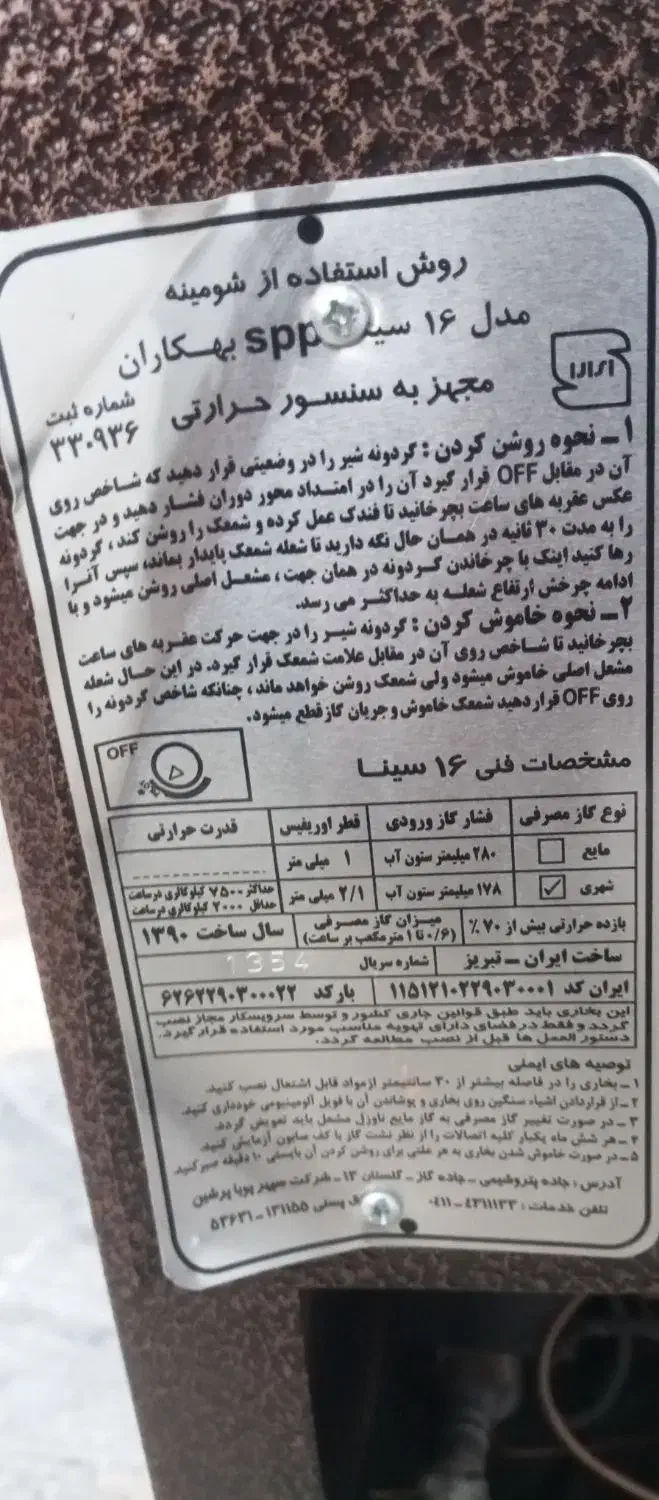 روش استفاده از شومینه
مدل ۱۶ سینا spp بهکاران
مجهز به سنسور حرارتی
شماره ثبت
۳۳۰۹۳۶
۱ـ نحوه روشن کردن : گردونه شیر را در وضعیتی قرار دهید که شاخص روی
آن در مقابل OFF قرار گیرد آن را در امتداد محور دوران فشار دهید و در جهت
عکس عقربه های ساعت بچرخانید تا فندک عمل کرده و شمعک را روشن کند ، گردونه
را به مدت ۳۰ ثانیه در همان حال نگه دارید تا شعله شمعک پایدار بماند، سپس آنرا
رها کنید اینک با چرخاندن گردونه در همان جهت ، مشعل اصلی روشن میشود و با
ادامه چرخش ارتفاع شعله به حداکثر می رسد.
۲ـ نحوه خاموش کردن : گردونه شیر را در جهت حرکت عقربه های ساعت
بچرخانید تا شاخص روی آن در مقابل علامت شمعک قرار گیرد. در این حال شعله
مشعل اصلی خاموش میشود ولی شمعک روشن خواهد ماند ، چنانکه شاخص گردونه را
روی OFF قرار دهید شمعک خاموش و جریان گاز قطع میشود.
OFF
مشخصات فنی ۱۶ سینا
نوع گاز مصرفی فشار گاز ورودی قطر اوریفیس قدرت حرارتی
مایع ۲۸۰ میلیمتر ستون آب ۱ میلی متر
شهری ۱۷۸ میلیمتر ستون آب ۲/۱ میلی متر حداکثر ۷۵۰۰ کیلوکالری درساعت
حداقل ۲۰۰۰ کیلوکالری درساعت
بازده حرارتی بیش از ۷۰٪ میزان گاز مصرفی
(۰/۶ تا ۱ مترمکعب بر ساعت) سال ساخت ۱۳۹۰
ساخت ایران ـ تبریز شماره سریال 1354
ایران کد ۱۱۵۱۲۱۰۲۲۹۰۳۰۰۰۱ بارکد ۶۲۶۲۲۹۰۳۰۰۰۲۲
این بخاری باید طبق قوانین جاری کشور و توسط سرویسکار مجاز نصب
گردد و فقط در فضای دارای تهویه مناسب مورد استفاده قرار گیرد.
دستور العمل ها قبل از نصب مطالعه گردد.
توصیه های ایمنی
۱ـ بخاری را در فاصله بیشتر از ۳۰ سانتیمتر ازمواد قابل اشتعال نصب کنید.
۲ـ از قراردادن اشیاء سنگین روی بخاری و پوشاندن آن با فویل آلومینیومی خودداری کنید.
۳ـ در صورت تغییر گاز مصرفی به گاز مایع ناوزل مشعل باید تعویض گردد.
۴ـ هر شش ماه یکبار کلیه اتصالات را از نظر نشت گاز با کف صابون آزمایش کنید.
۵ـ در صورت خاموش شدن بخاری به هر علتی برای روشن کردن آن بایستی ۱۰ دقیقه صبر کنید.
آدرس : جاده پتروشیمی ـ جاده گاز ـ گلستان ۱۳ ـ شرکت سپهر پویا پرشین
تلفن خدمات : ۴۳۱۱۱۳۳ـ۰۴۱۱ پستی ۱۳۱۱۵۵ـ۵۳۶۳۱